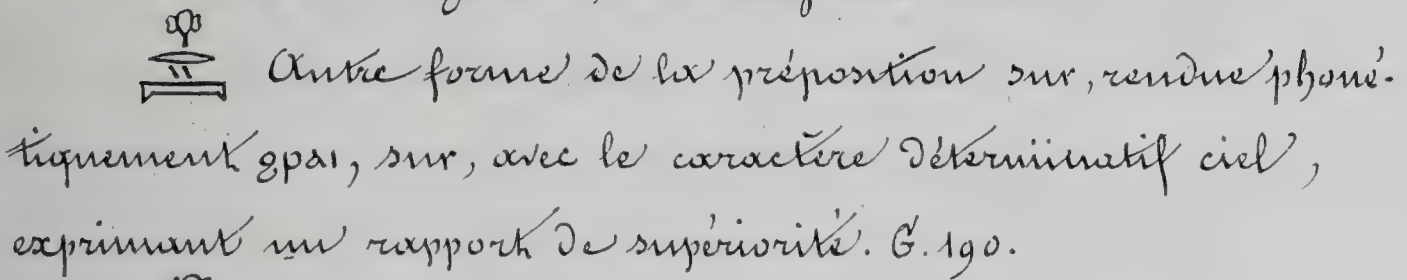 Autre forme de la préposition sur, rendue phoné-
tiquement ϩραι, sur, avec le caractère déterminatif ciel,
exprimant un rapport de supériorité. G. 190.